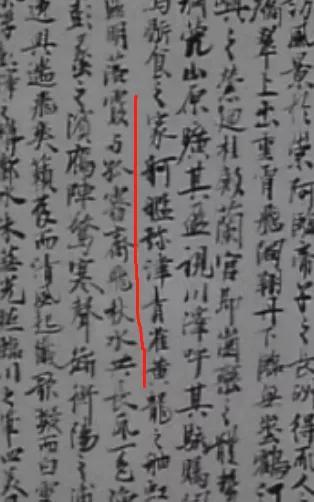 訪風景於崇阿臨帝子之長洲得天人
翠上出重霄飛閣翔丹下臨無地鶴汀
之縈迴桂殿蘭宮即崗巒之體勢披
甍山原曠其盈視川澤吁其駭矚
鼎食之家舸艦弥津青雀黃龍之舳虹
區明落霞与孤鶩齊飛秋水共長天一色漁
彭蠡之濱鴈陣驚寒聲斷衡陽之浦
遄飛爽籟發而清風起纖歌凝而白雲
彭澤之樽鄴水朱華光照臨川之筆四美